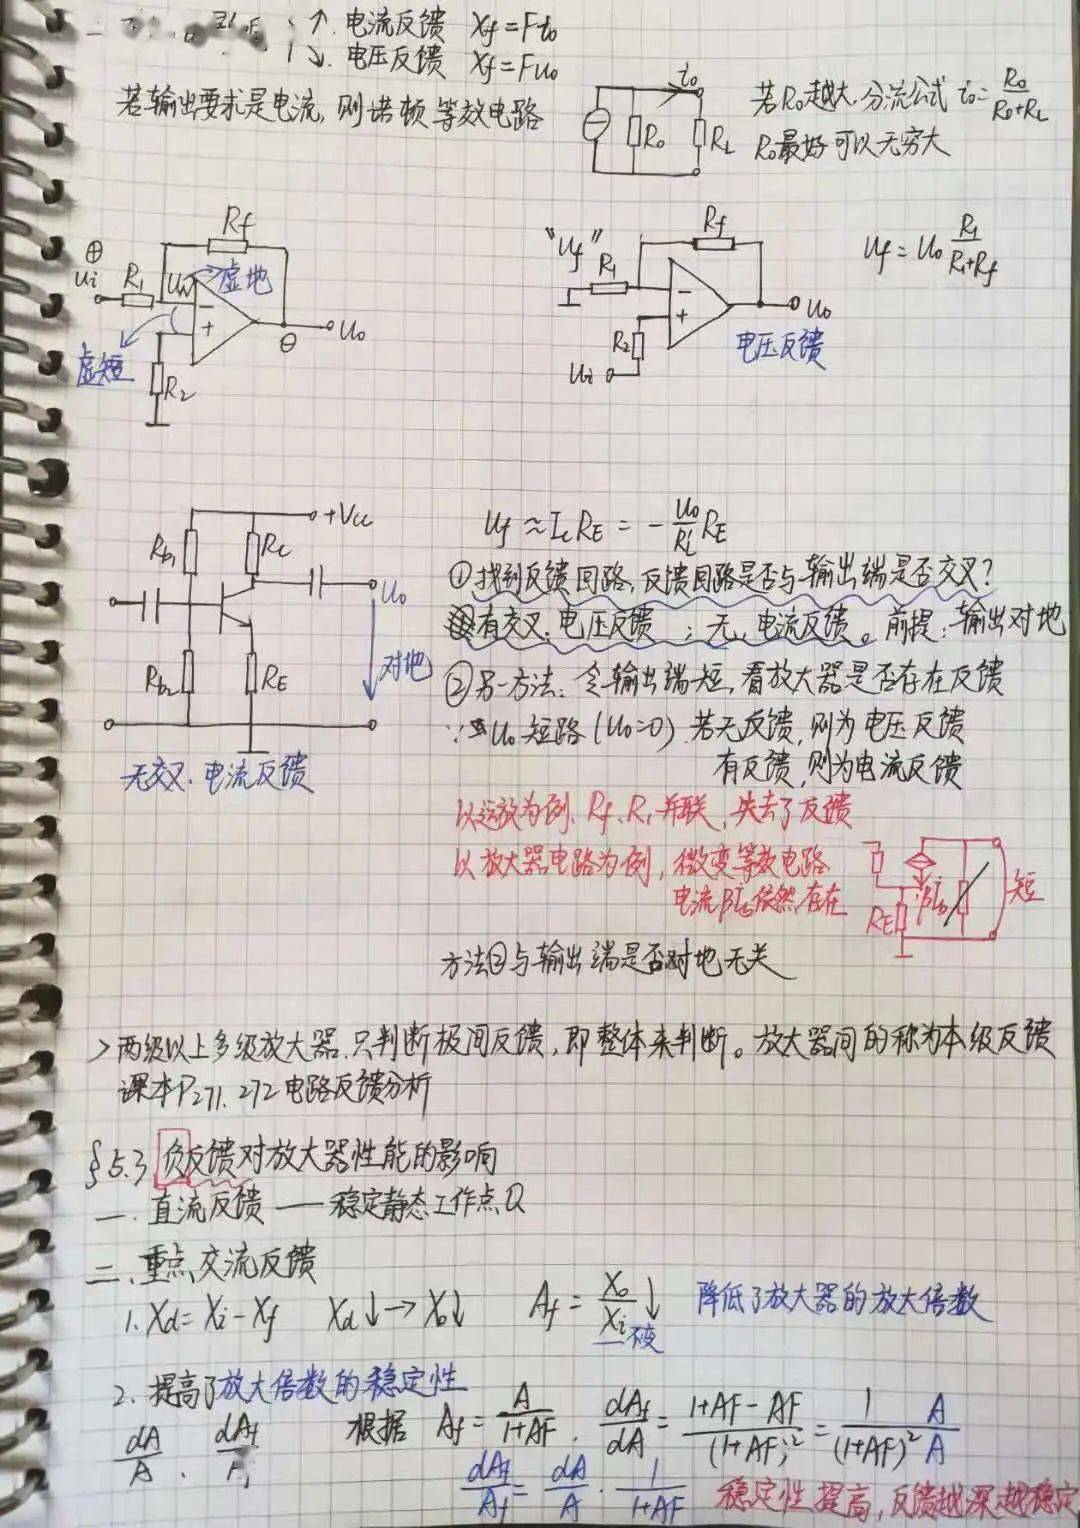 电流反馈 Xf=Fi₀
电压反馈 Xf=Fu₀
若输出要求是电流,则诺顿等效电路
i₀
R₀
RL
若R₀越大,分流公式 i₀=R₀/(R₀+RL)
R₀最好可以无穷大
⊕
ui
R₁
Rf
虚地
虚短
R₂
−
+
⊖
u₀
"Uf"
R₁
Rf
−
+
R₂
Ui
U₀
电压反馈
Uf=U₀ R₁/(R₁+Rf)
+Vcc
Rb₁
Rc
U₀
Rb₂
RE
对地
无交叉.电流反馈
Uf≈IcRE=−(U₀/RL')RE
①找到反馈回路,反馈回路是否与输出端是否交叉?
有交叉.电压反馈;无,电流反馈。前提:输出对地
②另一方法:令输出端短,看放大器是否存在反馈
∵U₀短路(U₀=0).若无反馈,则为电压反馈
有反馈,则为电流反馈
以运放为例,Rf、R₁并联,失去了反馈
以放大器电路为例,微变等效电路
电流βİb依然存在
RE
βİb
短
方法②与输出端是否对地无关
>两级以上多级放大器,只判断极间反馈,即整体来判断。放大器间的称为本级反馈
课本P271.272电路反馈分析
§5.3 负反馈对放大器性能的影响
一.直流反馈——稳定静态工作点Q
二.重点,交流反馈
1.Xd=Xi−Xf Xd↓→X₀↓ Af=X₀/Xi↓ 降低了放大器的放大倍数
不变
2.提高了放大倍数的稳定性
dA/A、dAf/ 根据 Af=A/(1+AF). dAf/dA=(1+AF−AF)/(1+AF)²=1/(1+AF)² A/A
dAf/Af=dA/A·1/(1+AF) 稳定性提高,反馈越深越稳定